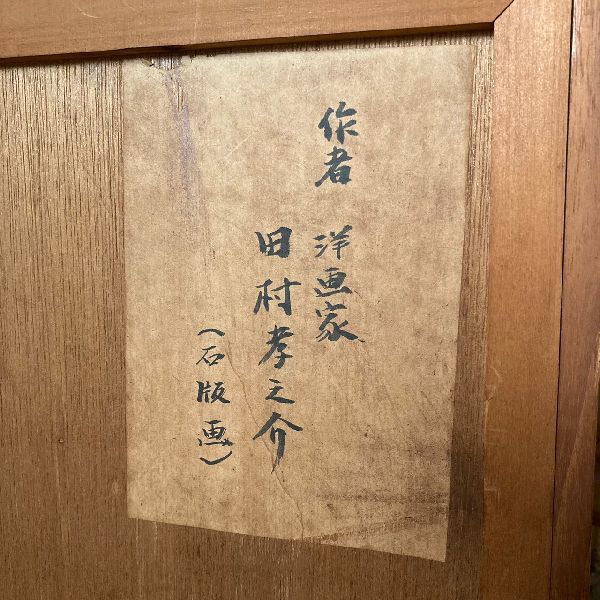 作者 洋画家
田村孝之介
（石版画）